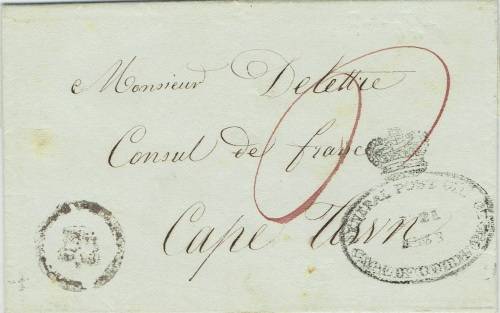 Monsieur Delettre
Consul de france
Cape Town
GENERAL POST OFFICE
21
CAPE OF GOOD HOPE